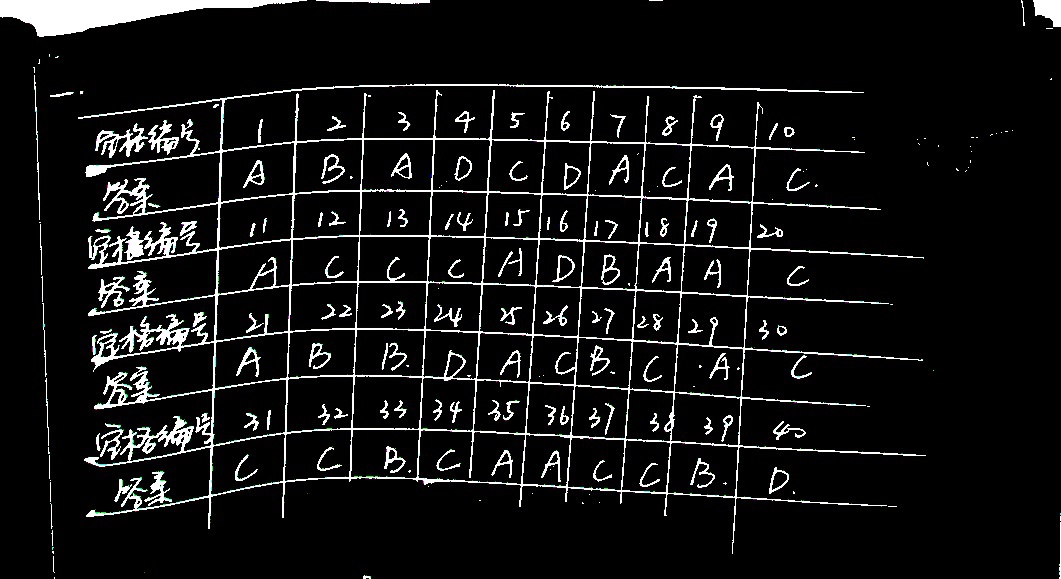 一.
空格编号 1 2 3 4 5 6 7 8 9 10
答案 A B. A D C D A C A C.
空格编号 11 12 13 14 15 16 17 18 19 20
答案 A C C C A D B. A A C
空格编号 21 22 23 24 25 26 27 28 29 30
答案 A B B. D. A C B. C A. C
空格编号 31 32 33 34 35 36 37 38 39 40
答案 C C B. C A A C C B. D.